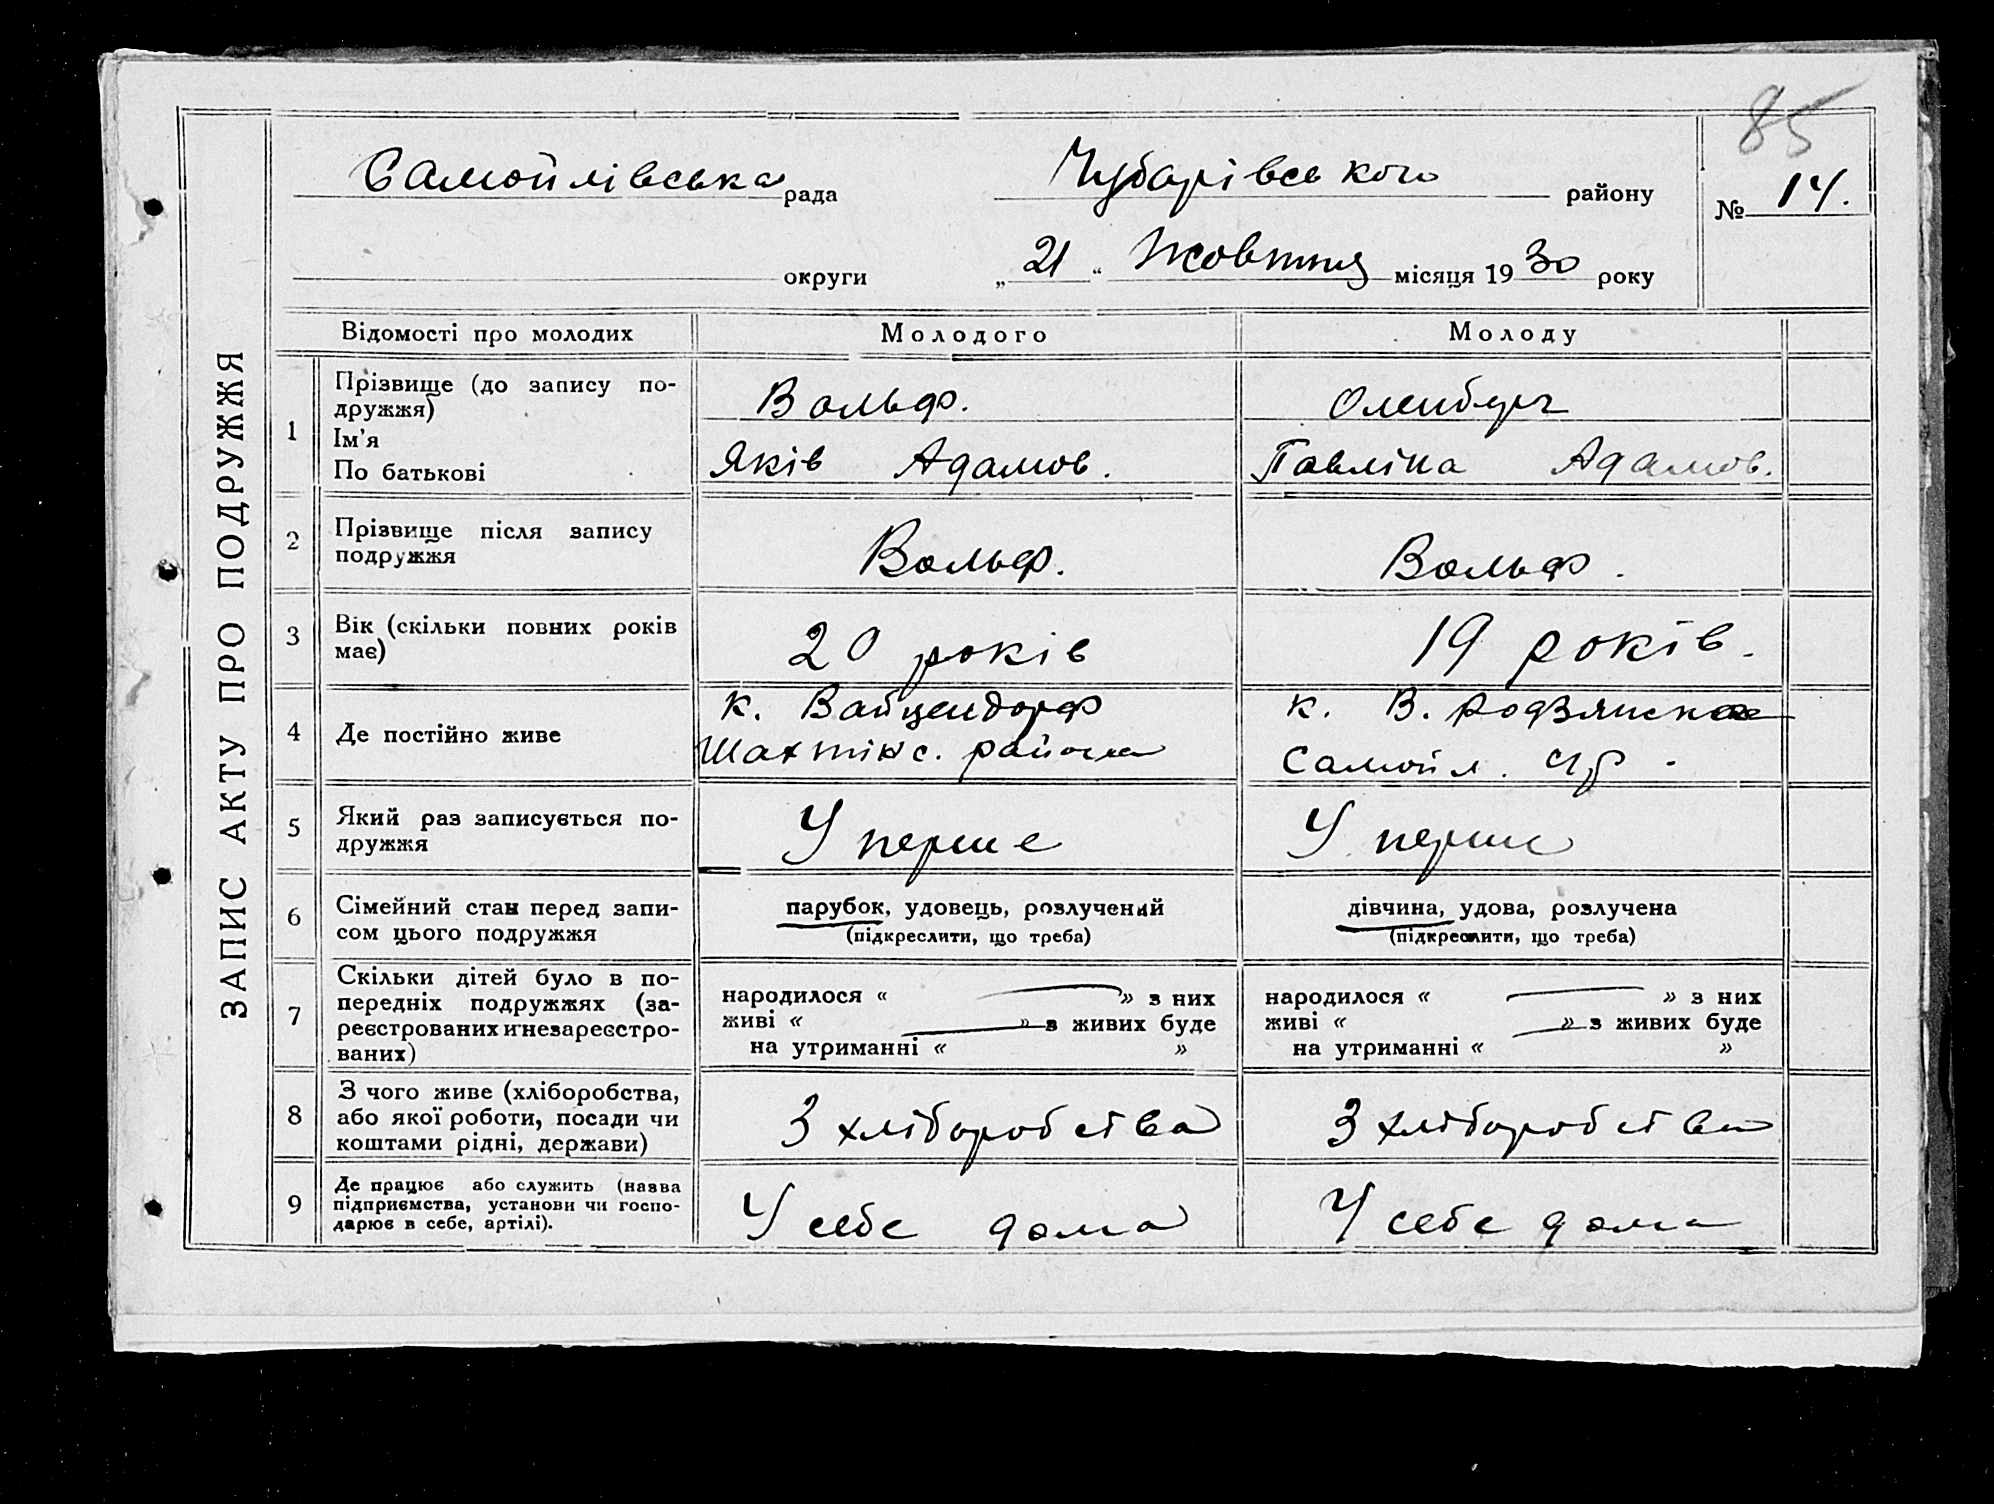 85
Самойлівська рада Чубарівського району № 14.
округи „21“ Жовтня місяця 1930 року
ЗАПИС АКТУ ПРО ПОДРУЖЖЯ
Відомості про молодих Молодого Молоду
1 Прізвище (до запису по-
дружжя) Вольф.
Ім'я
По батькові Яків Адамов. Павліна Адамов.
2 Прізвище після запису
подружжя Вольф. Вольф.
3 Вік (скільки повних років
має) 20 років 19 років.
4 Де постійно живе к. Вайцендорф к. В. Родзянска
района Самойл.
5 Який раз записується по-
дружжя У перше У перше
6 Сімейний стан перед запи-
сом цього подружжя парубок, удовець, розлучений дівчина, удова, розлучена
(підкреслити, що треба) (підкреслити, що треба)
7 Скільки дітей було в по-
передніх подружжях (за-
реєстрованих и незареєстро-
ваних)
народилося « » з них народилося « » з них
живі « » з живих буде живі « » з живих буде
на утриманні « » на утриманні « »
8 З чого живе (хліборобства,
або якої роботи, посади чи
коштами рідні, держави) З хліборобства З хліборобства
9 Де працює або служить (назва
підприємства, установи чи госпо-
дарює в себе, артілі). У себе дома У себе дома